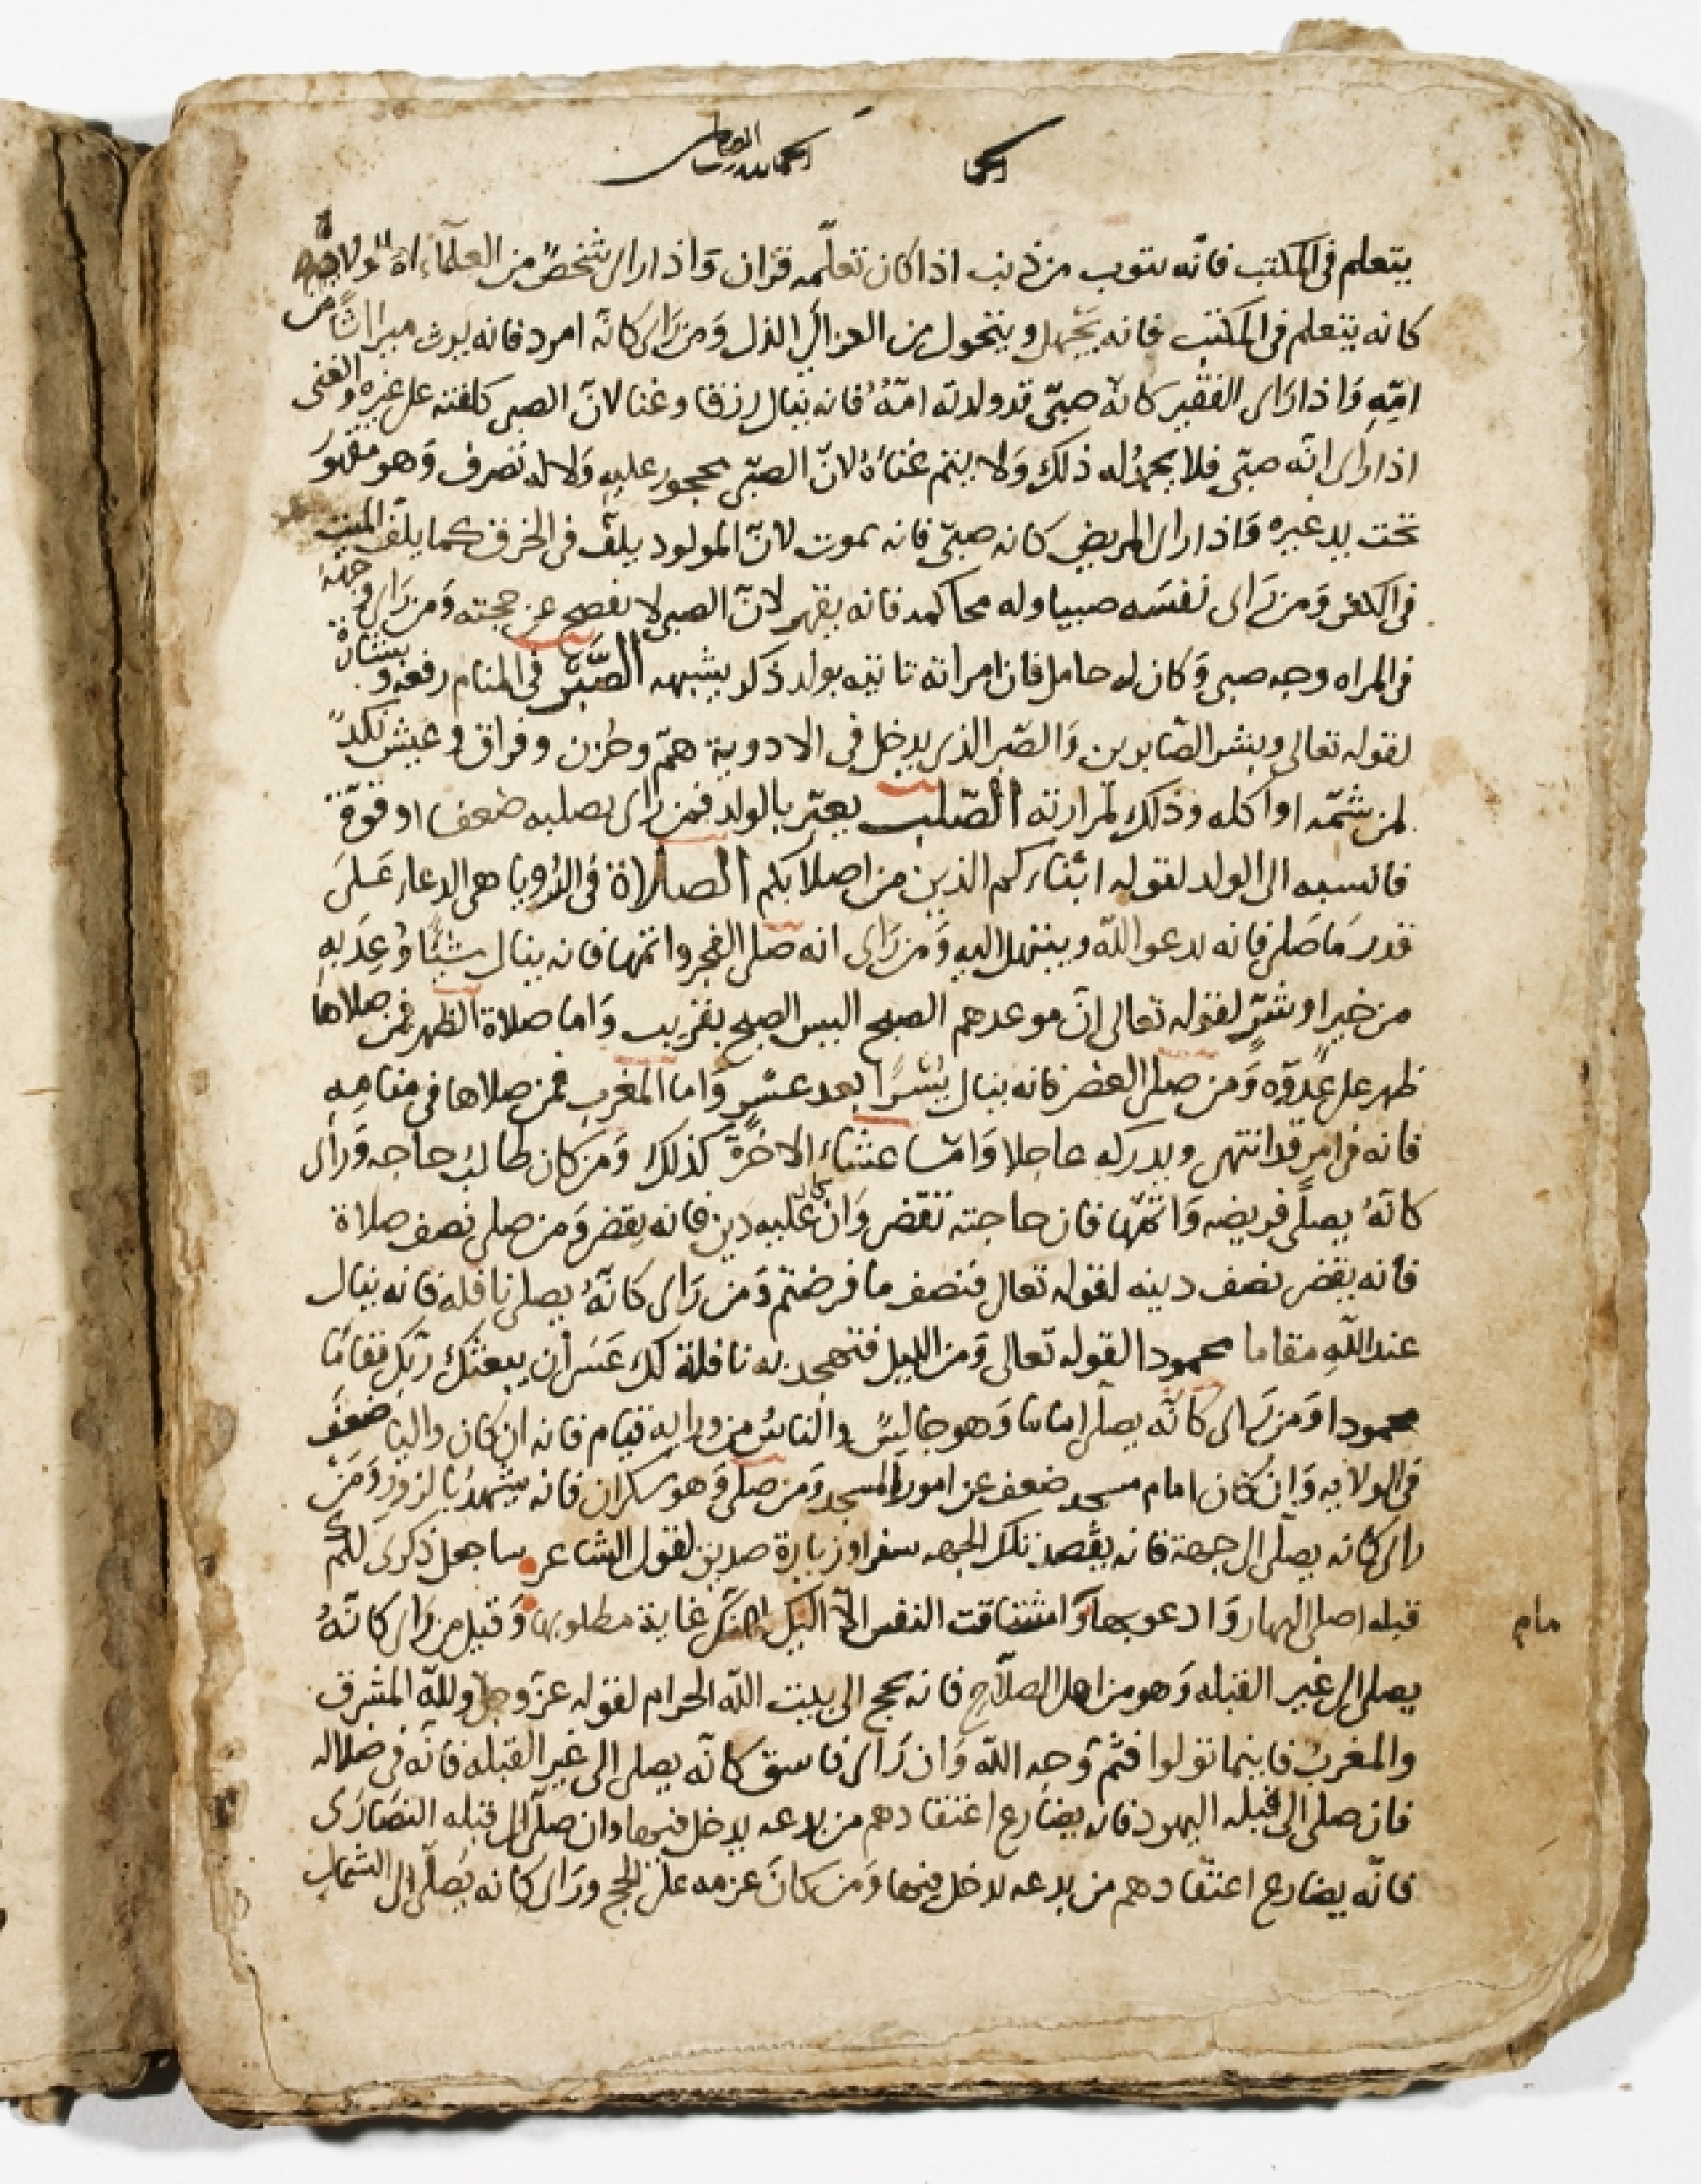 الحمد لله رب
يتعلم في المكتب فانه يتوب من ذنب اذا كان تعلمه قران واذا راى شخص من العلماء او الولاة
كانه يتعلم في المكتب فانه يجهل ويتحول من العز الى الذل ومن راى كانه امرد فانه يرث ميراثا من
امه واذا راى الفقير كانه صبي قد ولدته امه فانه ينال رزقا وغنا لان الصبي كلفته على غيره والغني
اذا راى انه صبي فلا يحمد له ذلك ولا يتم غناه لان الصبي محجور عليه ولا له تصرف وهو مقهور
تحت يد غيره واذا راى المريض كانه صبي فانه يموت لان المولود يلف في الخرق كما يلف الميت
في الكفن ومن راى نفسه صبيا وله محاكمه فانه يقهر لان الصبي لا يفصح عن حجته ومن راى وجهه
في المراه وجه صبي وكان له حامل فان امراته تاتيه بولد ذكر يشبهه الصبر في المنام رفعه وبشارة
لقوله تعالى وبشر الصابرين والصبر الذي يدخل في الادوية هم وحزن وفراق وعيش نكد
لمن شمه او اكله وذلك لمرارته الصلب يعبر بالولد فمن راى بصلبه ضعف او قوة
فانسبه الى الولد لقوله ابناءكم الذين من اصلابكم الصلاة في الرويا هي الدعاء على
قدر ما صلى فانه يدعو الله ويبتهل اليه ومن راى انه صلى الفجر واتمها فانه ينال شيئا وعد به
من خير او شر لقوله تعالى ان موعدهم الصبح اليس الصبح بقريب واما صلاة الظهر فمن صلاها
ظهر على عدوه ومن صلى العصر فانه ينال يسرا بعد عسر واما المغرب فمن صلاها في منامه
فانه في امر قد انتهى ويدركه عاجلا واما عشاء الاخرة كذلك ومن كان طالب حاجه وراى
كانه يصلي فريضه واتمها فان حاجته تقضى وان كان عليه دين فانه يقضى ومن صلى نصف صلاة
فانه يقضى نصف دينه لقوله تعالى فنصف ما فرضتم ومن راى كانه يصلي نافله فانه ينال
عند الله مقاما محمودا لقوله تعالى ومن الليل فتهجد به نافلة لك عسى أن يبعثك ربك مقاما
محمودا ومن راى كانه يصلي اماما وهو جالس والناس من ورايه قيام فانه ان كان واليا ضعف
في الولايه وان كان امام مسجد ضعف عن امور المسجد ومن صلى وهو سكران فانه يشهد بالزور ومن
راى كانه يصلي الى جهة فانه يقصد تلك الجهه سفر او زيارة صديق لقول الشاعر ساجعل ذكرى لكم
قبله اصلي اليها وادعو بها وما اشتاقت النفس الا اليك غاية مطلوبها وقيل من راى كانه
مام
يصلي الى غير القبله وهو من اهل الصلاح فانه يحج الى بيت الله الحرام لقوله عز وجل ولله المشرق
والمغرب فاينما تولوا فثم وجه الله وان راى فاسق كانه يصلي الى غير القبله فانه في ضلاله
فان صلى الى قبله اليهود فانه يضارع اعتقادهم من بدعه يدخل فيها وان صلى الى قبله النصارى
فانه يضارع اعتقادهم من بدعه يدخل فيها ومن كان عزمه على الحج وراى كانه يصلي الى الشمال